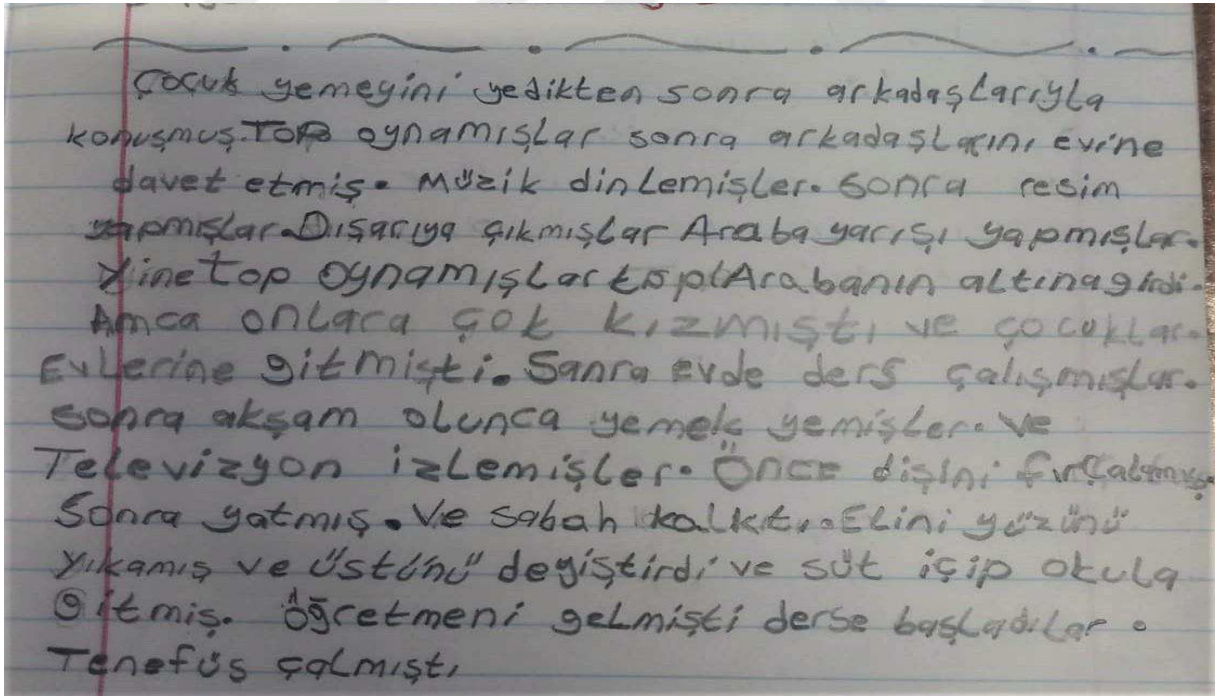 Çocuk yemeyini yedikten sonra arkadaşlarıyla
konuşmuş. Top oynamışlar sonra arkadaşlarını evine
davet etmiş. Müzik dinlemişler. Sonra resim
yapmışlar. Dışarıya çıkmışlar Araba yarışı yapmışlar.
Yine top oynamışlar top Arabanın altına girdi.
Amca onlara çok kızmıştı ve çocuklar.
Evlerine gitmişti. Sanra evde ders çalışmışlar.
Sonra akşam olunca yemek yemişler. ve
Televizyon izlemişler. Önce dişini fırçalamış.
Sonra yatmış. Ve sabah kalktı. Elini yüzünü
Yıkamış ve üstünü deyiştirdi ve süt içip okula
Gitmiş. Öğretmeni gelmişti derse başladılar.
Tenefüs çalmıştı